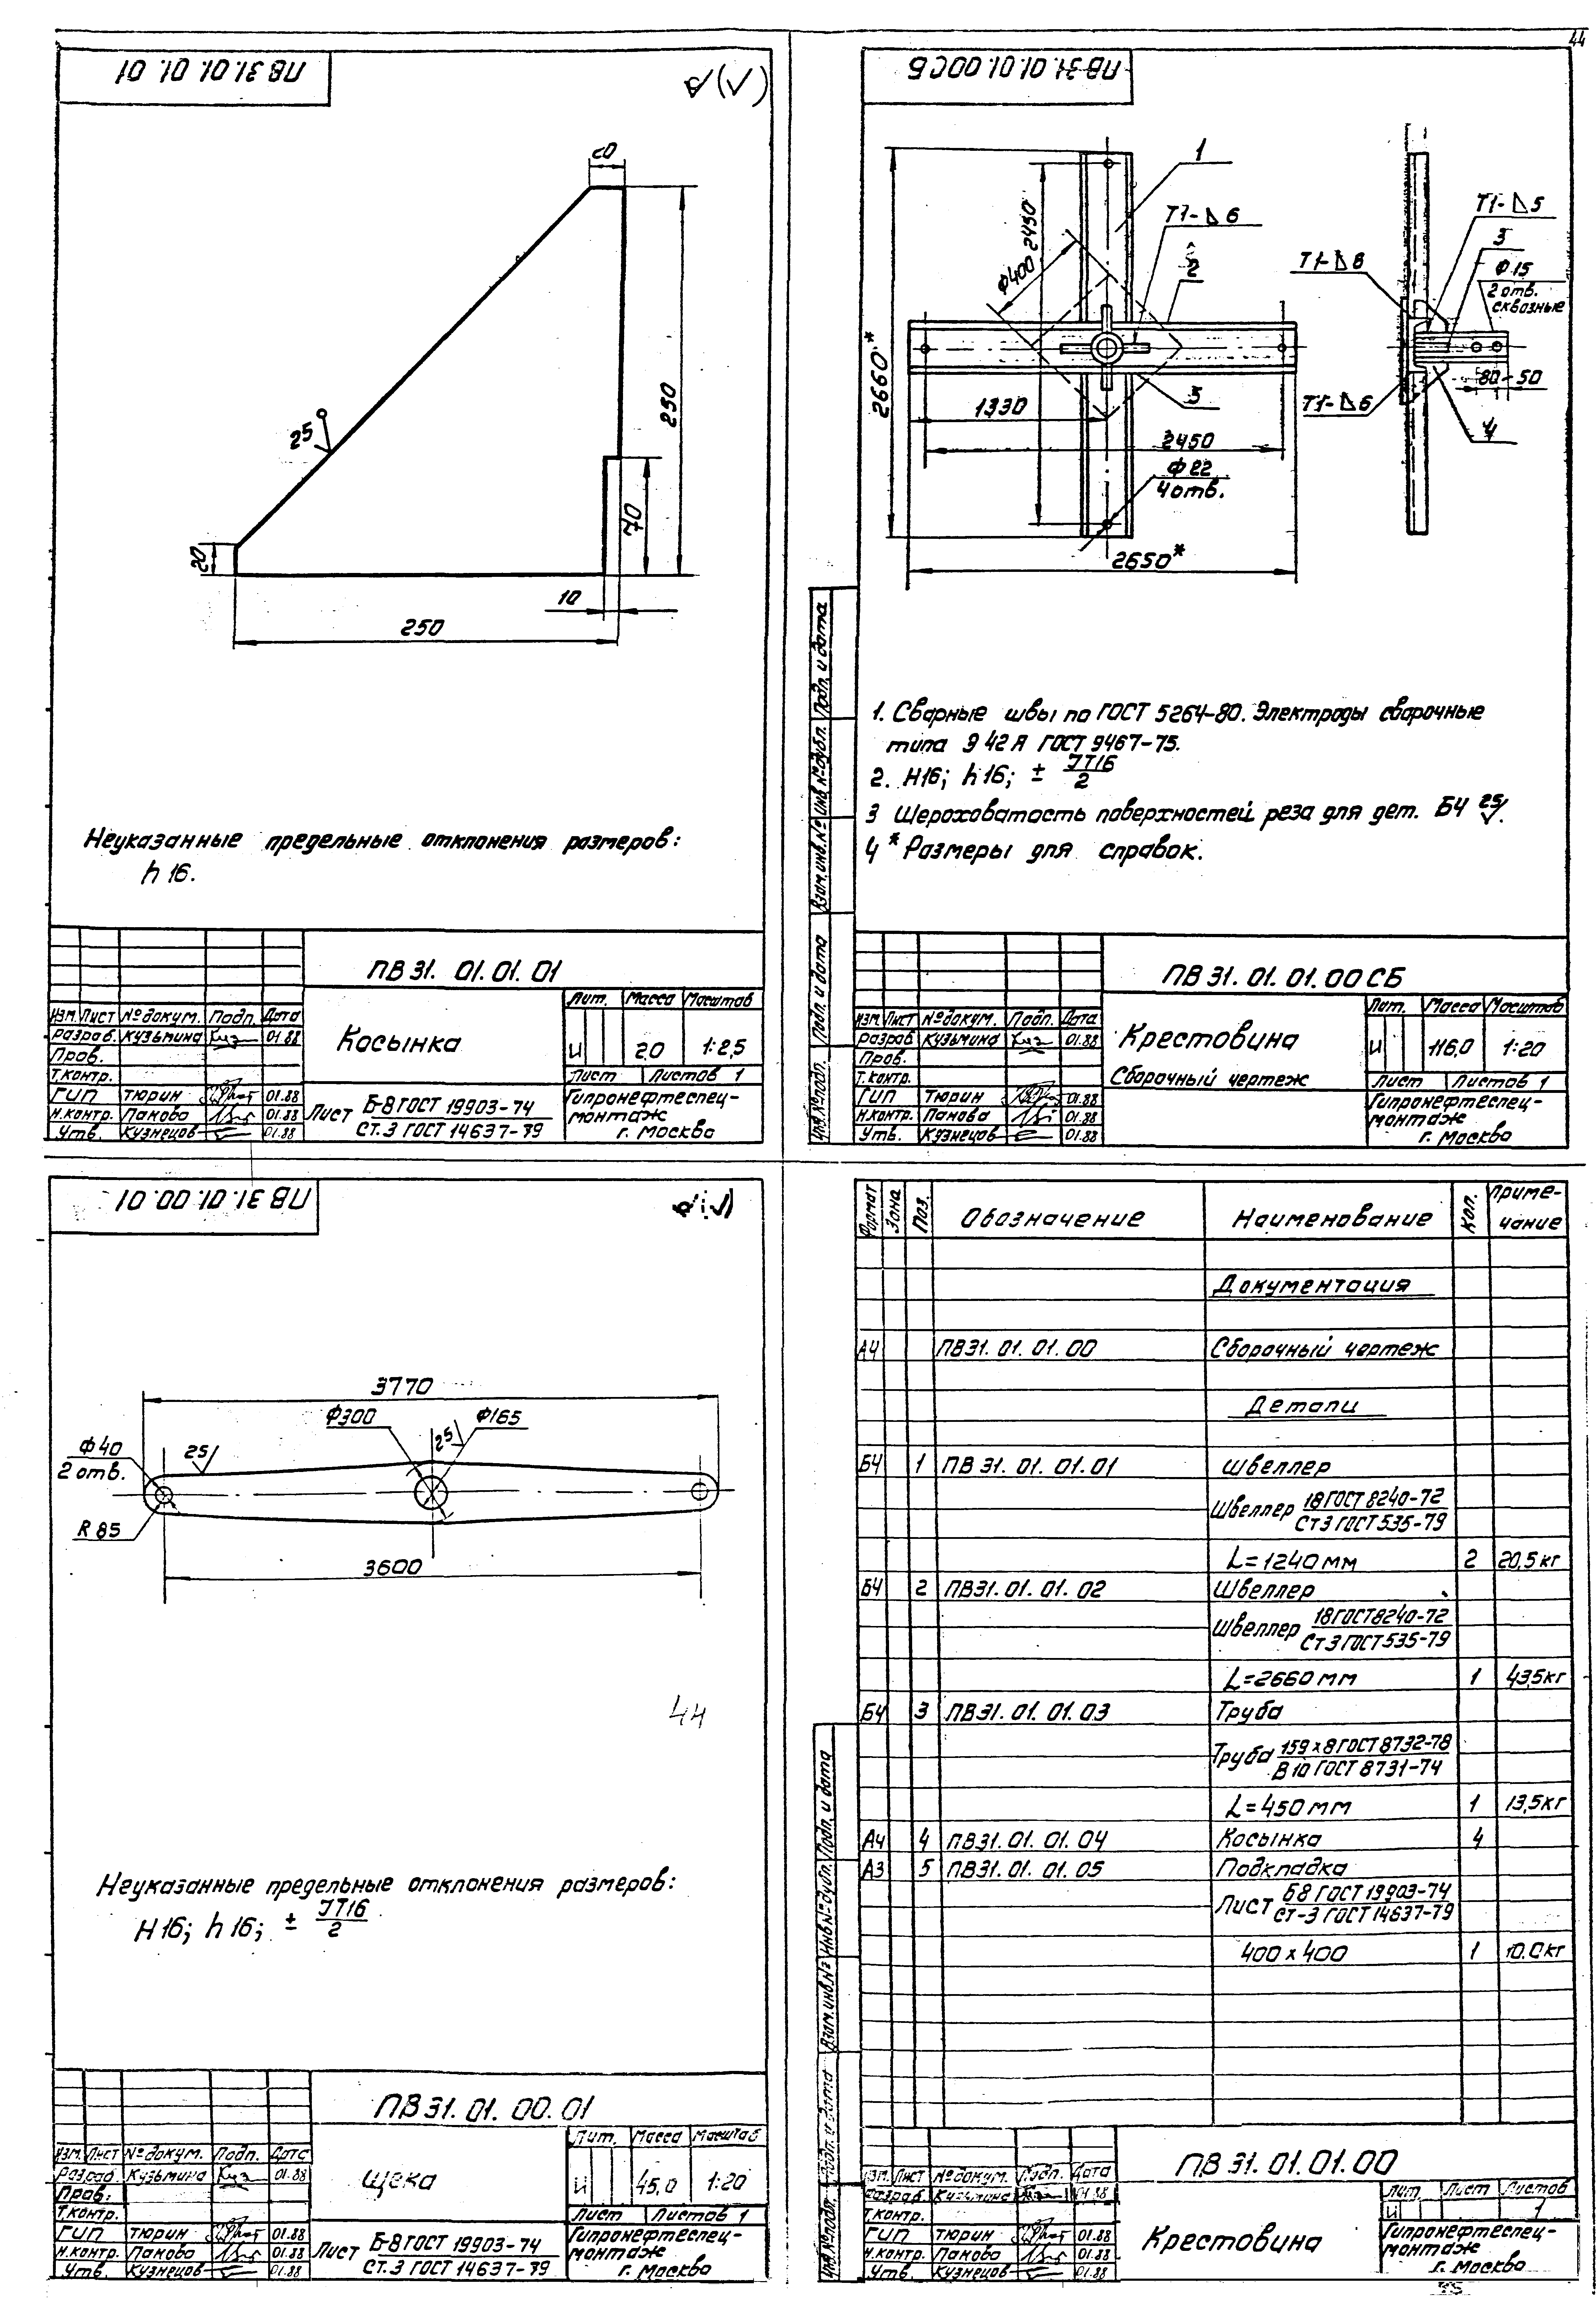 44
ПВ 31. 01. 01. 01
(√)
20
250
25
70
20
10
250
Неуказанные предельные отклонения размеров:
h 16.
ПВ 31. 01. 01. 01
Изм. Лист № докум. Подп. Дата
Разраб. Кузьмина 01.88
Пров.
Т.контр.
ГИП Тюрин 01.88
Н.контр. Панова 01.88
Утв. Кузнецов 01.88
Косынка
Лит. Масса Масштаб
И 2,0 1:2,5
Лист Листов 1
Лист Б-8 ГОСТ 19903-74
Ст.3 ГОСТ 14637-79
Гипронефтеспец-
монтаж
г. Москва
ПВ 31. 01. 01. 00СБ
1
Т1-⊿ 6
2
2450
Ф400
2660*
1330
5
2450
Ф 22
4 отв.
2650*
Т1-⊿5
3
Т1-⊿ 8
Ф 15
2 отв.
сквозные
80 50
Т1-⊿6
4
1. Сварные швы по ГОСТ 5264-80. Электроды сварочные
типа Э 42 А ГОСТ 9467-75.
2. Н16; h 16; ± JT16/2
3 Шероховатость поверхностей реза для дет. БЧ 25√.
4 * Размеры для справок.
Подп. и дата
Инв. № дубл.
Взам. инв. №
Подп. и дата
Инв. № подл.
ПВ 31. 01. 01. 00 СБ
Изм. Лист № докум. Подп. Дата
Разраб Кузьмина 01.88
Пров.
Т.контр.
ГИП Тюрин 01.88
Н.контр. Панова 01.88
Утв. Кузнецов 01.88
Крестовина
Сборочный чертеж
Лит. Масса Масштаб
И 116,0 1:20
Лист Листов 1
Гипронефтеспец-
монтаж
г. Москва
ПВ 31. 01. 00. 01
3770
Ф300
Ф165
25
25
Ф 40
2 отв.
R 85
3600
44
Неуказанные предельные отклонения размеров:
Н 16; h 16; ± JT16/2
ПВ 31. 01. 00. 01
Изм. Лист № докум. Подп. Дата
Разраб. Кузьмина 01.88
Пров.
Т.контр.
ГИП Тюрин 01.88
Н.контр. Панова 01.88
Утв. Кузнецов 01.88
Щека
Лит. Масса Масштаб
И 45,0 1:20
Лист Листов 1
Лист Б-8 ГОСТ 19903-74
Ст.3 ГОСТ 14637-79
Гипронефтеспец-
монтаж
г. Москва
Формат Зона Поз. Обозначение Наименование Кол. Приме-
чание
Документация
А4 ПВ31. 01. 01. 00 Сборочный чертеж
Детали
БЧ 1 ПВ 31. 01. 01. 01 Швеллер
Швеллер 18 ГОСТ 8240-72
Ст 3 ГОСТ 535-79
L=1240 мм 2 20,5 кг
БЧ 2 ПВ31. 01. 01. 02 Швеллер
Швеллер 18 ГОСТ 8240-72
Ст 3 ГОСТ 535-79
L=2660 мм 1 43,5кг
БЧ 3 ПВ31. 01. 01. 03 Труба
Труба 159 х 8 ГОСТ 8732-78
В 10 ГОСТ 8731-74
L=450 мм 1 13,5кг
А4 4 ПВ31. 01. 01. 04 Косынка 4
А3 5 ПВ31. 01. 01. 05 Подкладка
Лист Б8 ГОСТ 19903-74
Ст-3 ГОСТ 14637-79
400 х 400 1 10.0 кг
Подп. и дата
Инв № дубл.
Взам. инв. №
Подп. и дата
Инв. № подл.
ПВ 31. 01. 01. 00
Изм. Лист № докум. Подп. Дата
Разраб. Кузьмина 01.88
Т.контр.
ГИП Тюрин 01.88
Н.контр. Панова 01.88
Утв. Кузнецов 01.88
Крестовина
Лит. Лист Листов
И 1
Гипронефтеспец-
монтаж
г. Москва